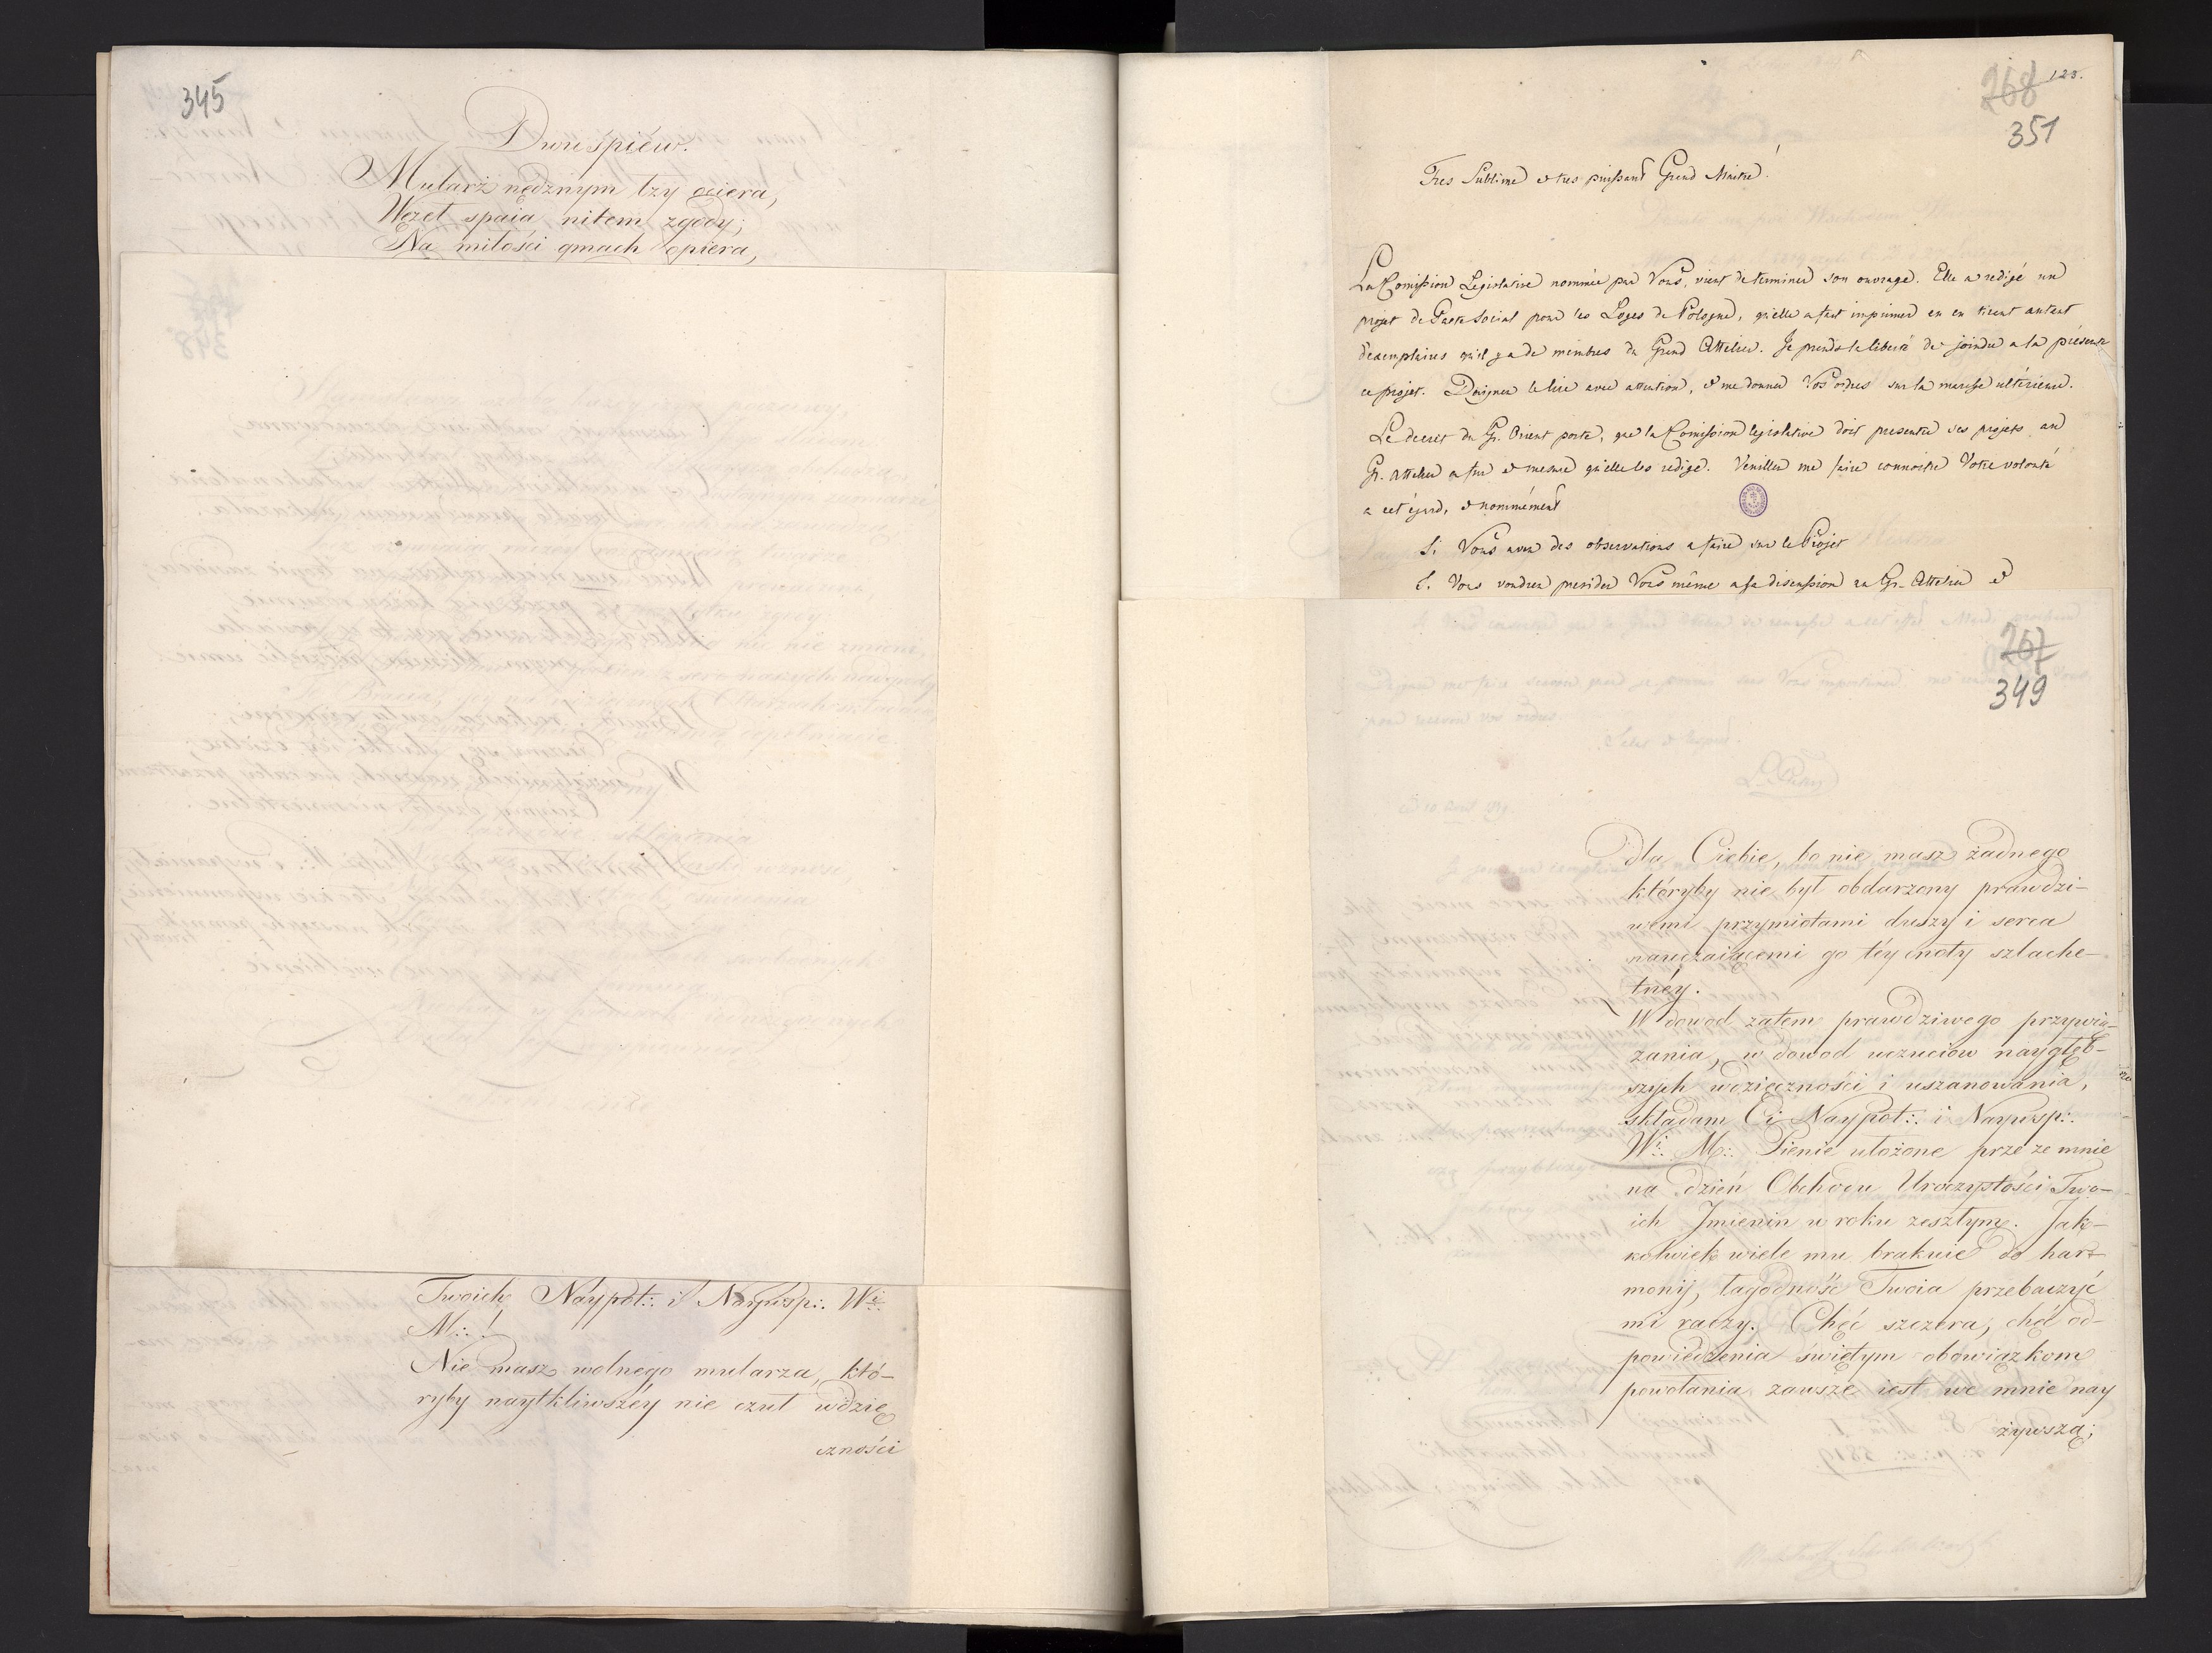 345
Dwuśpiéw.
Mularz nędznym łzy ociera,
Węzeł spaia nitem zgody;
Na miłości gmach opiera,
Twoich Naypot∴ i Naywsp∴ Wi∴
M∴!
Nie masz wolnego mularza, któ-
ryby naytkliwszéy nie czuł wdzię
czności
268 123.
351
Tres Sublime et tres puissant Grand Maitre!
La Comission Legislative nommée par Vous, vient de terminer son ouvrage. Elle a redigé un
projet de Pacte Social pour les Loges de Pologne, qu'elle a fait imprimer en en tirant autant
d'exemplaires qu'il y a de membres du Grand Attelier. Je prends la liberté de joindre a la présente
ce projet. Daignez le lire avec attention, et me donner Vos ordres sur la marche ultérieure.
Le decret du Gr. Orient porte, que la Comission legislative doit presenter ses projets au
Gr. Attelier a fur et mesure qu'elle les redige. Veuillez me faire connoitre Votre volonté
a cet égard, et nommément
Si Vous avez des observations a faire sur le Projet
S. Vous voudrez presider Vous même a sa discussion au Gr. Attelier et
267
349
dla Ciebie, bo nie masz żadnego
któryby nie był obdarzony prawdzi-
wemi przymiotami duszy i serca
nauczaiącemi go téy cnoty szlache-
tnéy.
W dowod zatem prawdziwego przywią-
zania, w dowod uczuciow naygłęb-
szych wdzięczności i uszanowania,
składam Ci Naypot∴ i Naywsp∴
Wi∴ M∴ Pienie ułożone prze ze mnie
na dzień Obchodu Uroczystości Two-
ich Jmienin w roku zeszłym. Jak-
kolwiek wiele mu brakuie do har-
monij, łagodność Twoia przebaczyć
mi raczy. Chęć szczera, chęć od-
powiedzenia świętym obowiązkom
powołania zawsze iest we mnie nay
żywszą;